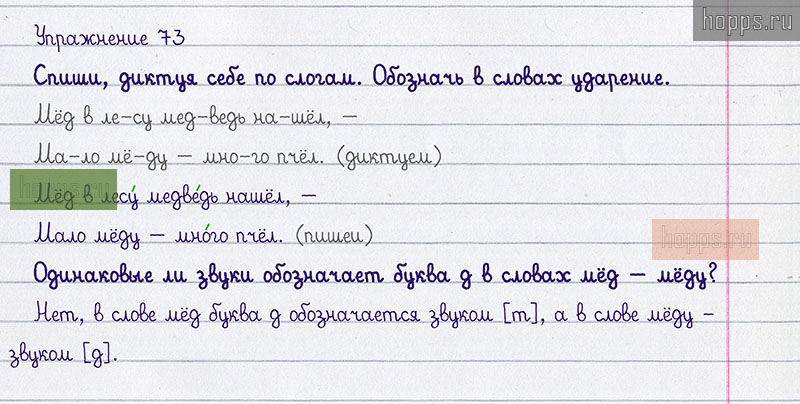 hopps.ru
Упражнение 73
Спиши, диктуя себе по слогам. Обозначь в словах ударение.
Мёд в ле-су мед-ведь на-шёл, –
Ма-ло мё-ду – мно-го пчёл. (диктуем)
Мёд в лесу́ медве́дь нашёл, –
Мало мёду – мно́го пчёл. (пишеи)
hopps.ru
Одинаковые ли звуки обозначает буква д в словах мёд – мёду?
Нет, в слове мёд буква д обозначается звуком [т], а в слове мёду –
звуком [д].